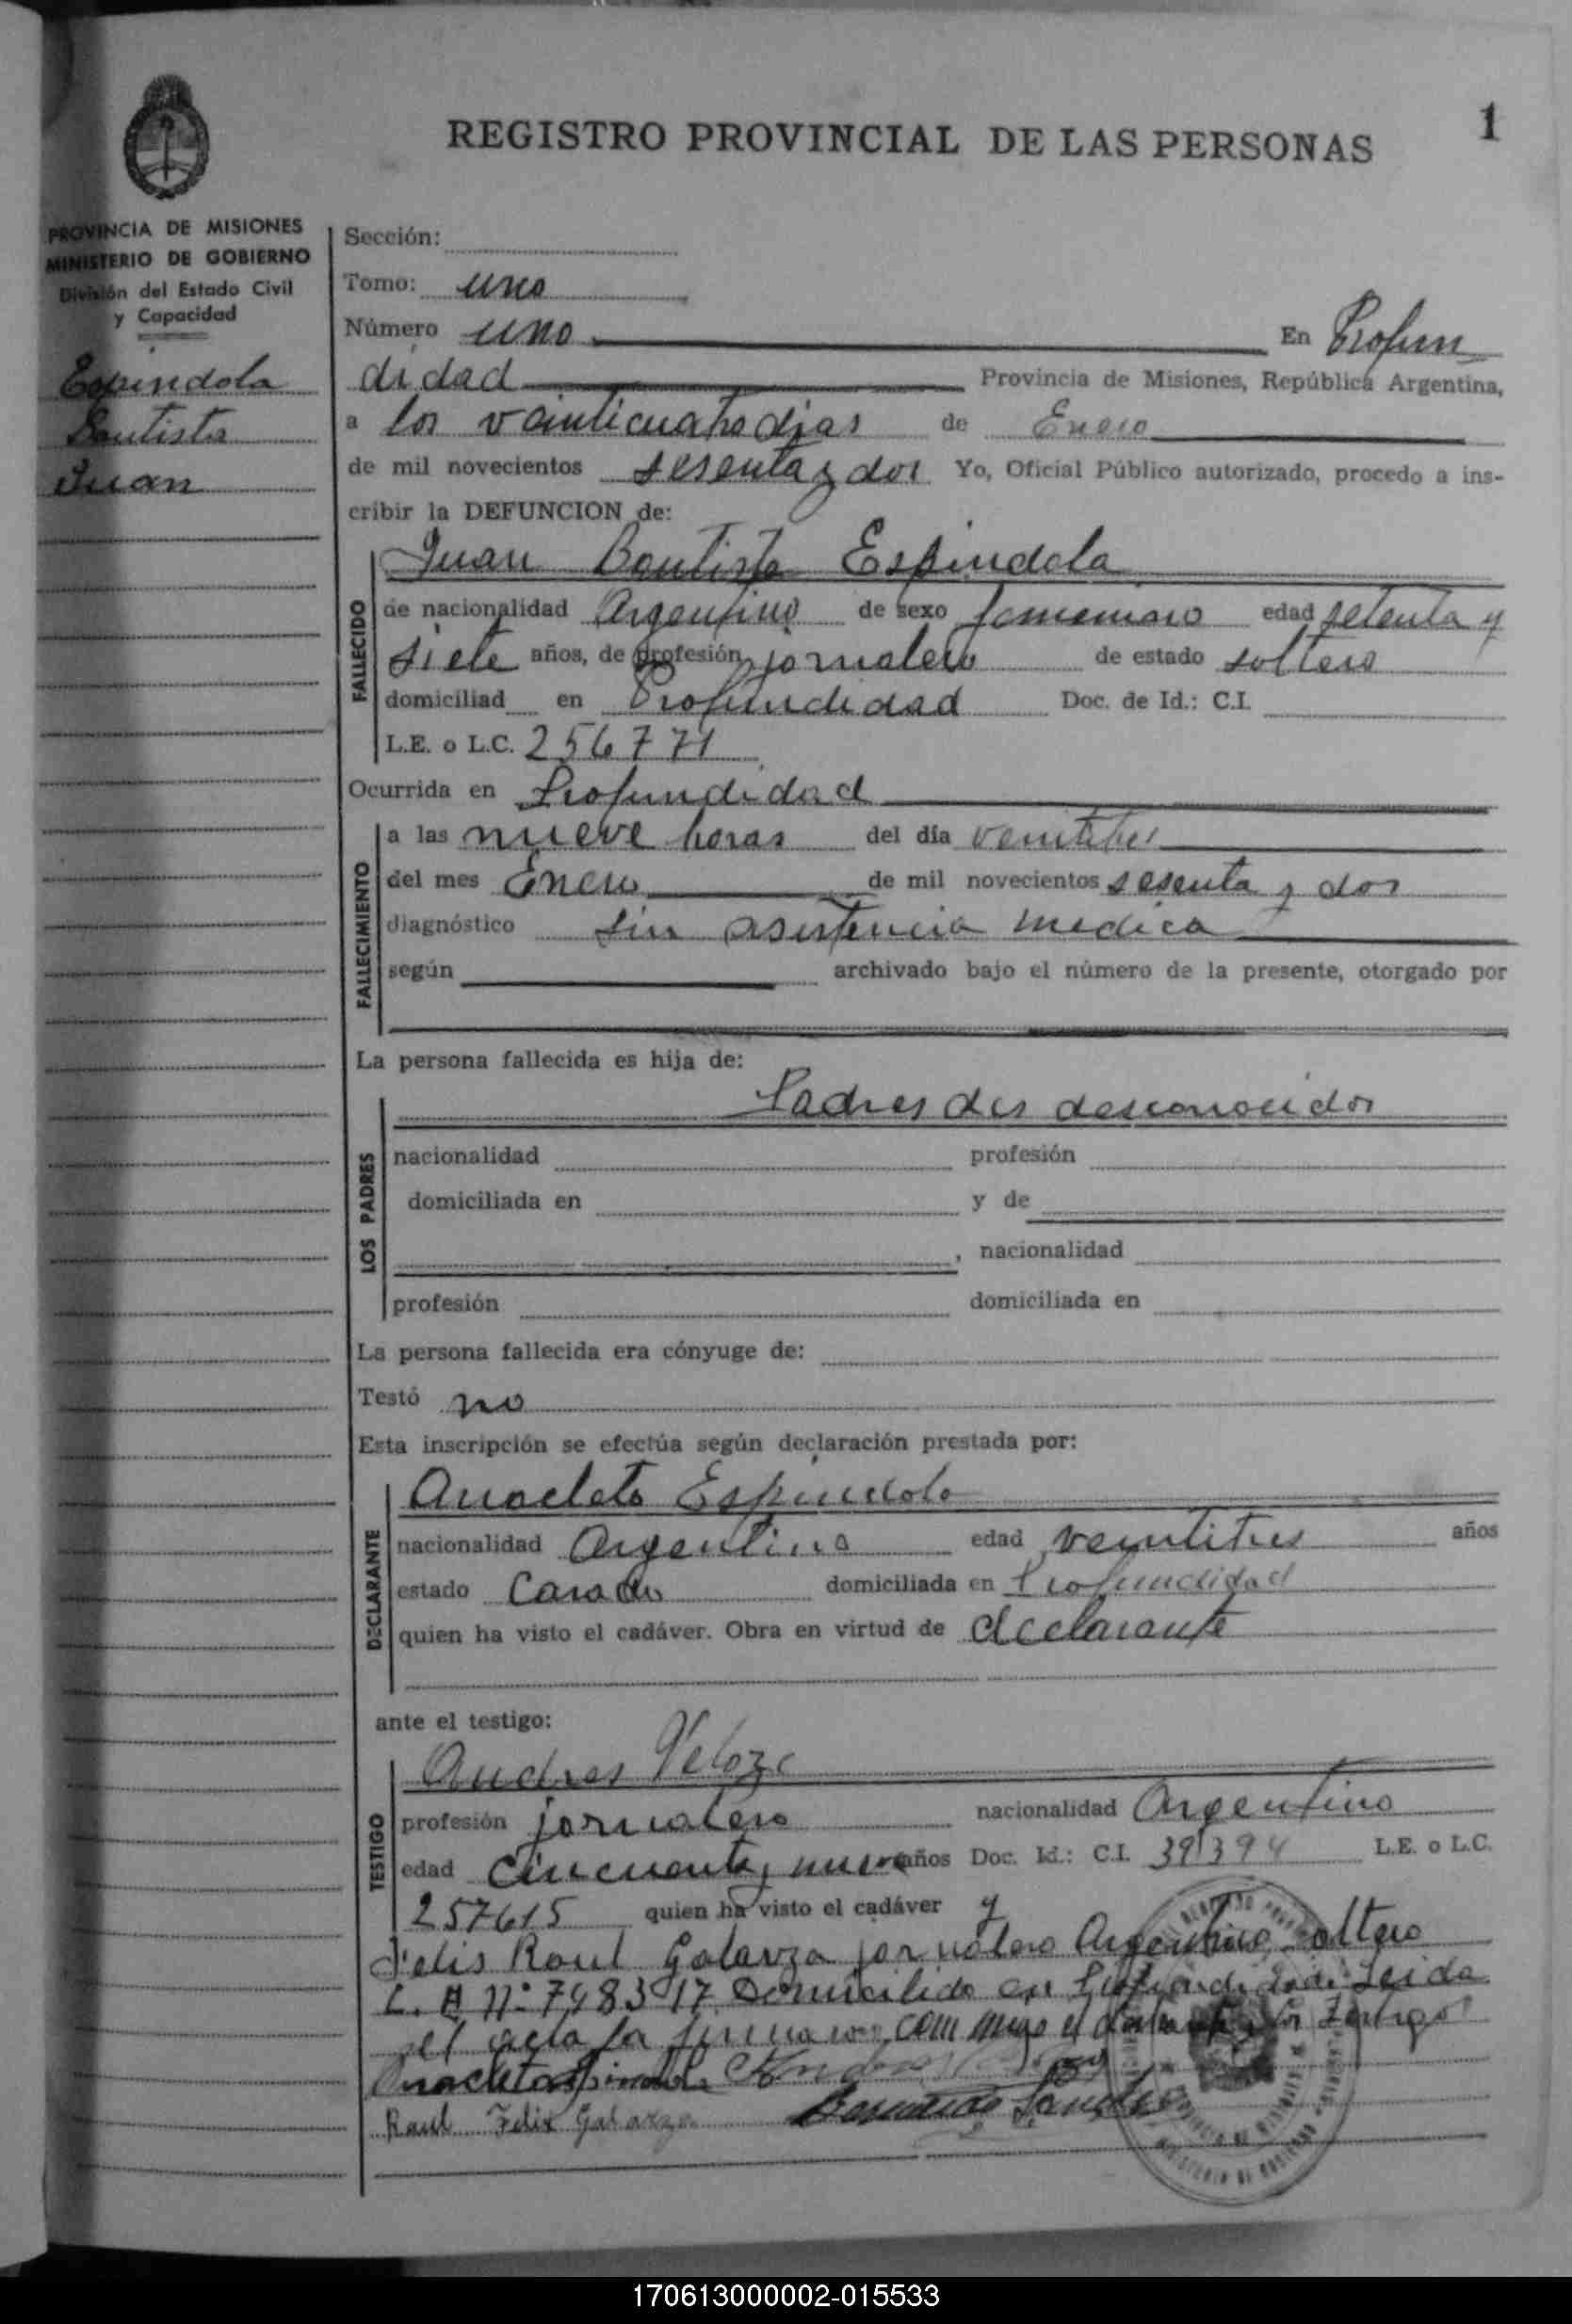 REGISTRO PROVINCIAL DE LAS PERSONAS
1
PROVINCIA DE MISIONES
MINISTERIO DE GOBIERNO
División del Estado Civil
y Capacidad
Espindola
Bautista
Juan
Sección:
Tomo: uno
Número uno En Profun
didad Provincia de Misiones, República Argentina,
a los veinticuatro dias de Enero
de mil novecientos sesenta y dos Yo, Oficial Público autorizado, procedo a ins-
cribir la DEFUNCION de:
Juan Bautista Espindola
FALLECIDO
de nacionalidad Argentino de sexo femenino edad setenta y
siete años, de profesión jornalero de estado soltero
domiciliad en Profundidad Doc. de Id.: C.I.
L.E. o L.C. 256771
Ocurrida en Profundidad
FALLECIMIENTO
a las nueve horas del día veintitres
del mes Enero de mil novecientos sesenta y dos
diagnóstico sin asistencia medica
según archivado bajo el número de la presente, otorgado por
La persona fallecida es hija de:
LOS PADRES
Padres des desconocidos
nacionalidad profesión
domiciliada en y de
, nacionalidad
profesión domiciliada en
La persona fallecida era cónyuge de:
Testó no
Esta inscripción se efectúa según declaración prestada por:
DECLARANTE
Anacleto Espindola
nacionalidad Argentino edad veintitres años
estado Casado domiciliada en Profundidad
quien ha visto el cadáver. Obra en virtud de declarante
ante el testigo:
TESTIGO
Andres Veloze
profesión jornalero nacionalidad Argentino
edad cincuenta y nueve años Doc. Id.: C.I. 39394 L.E. o L.C.
257615 quien ha visto el cadáver y
Felis Raul Galarza jornalero Argentino soltero
Nº 7483917 Domicilido en Profundidad Leida
el acta la firmaron com migo el testigos
Anacleto Espindola
Raul Felix Galarza
170613000002-015533